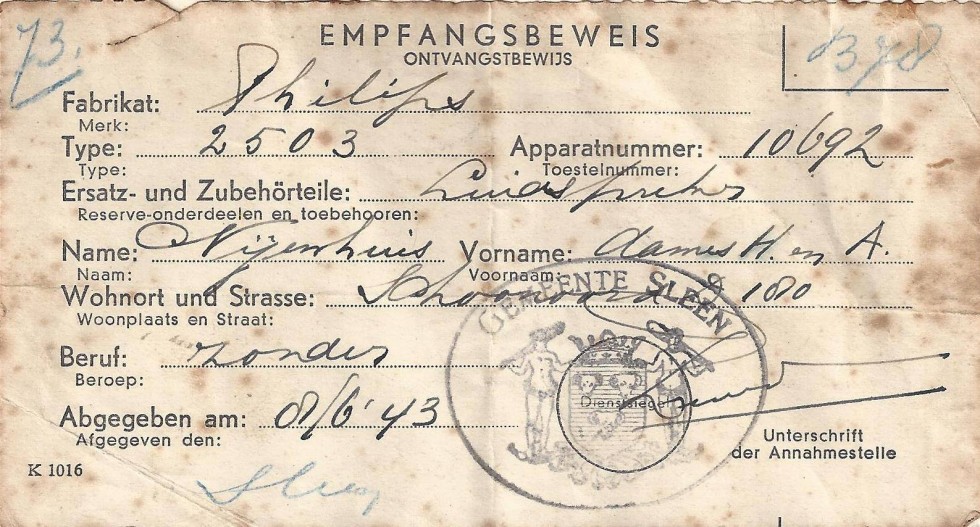 73.
EMPFANGSBEWEIS
B 78
ONTVANGSTBEWIJS
Fabrikat: Philips
Merk:
Type: 2503 Apparatnummer: 10692
Type: Toestelnummer:
Ersatz- und Zubehörteile: Luidspreker
Reserve-onderdeelen en toebehooren:
Name: Nijenhuis Vorname: dames H. en A.
Naam: Voornaam:
Wohnort und Strasse: Schoonoord 180
Woonplaats en Straat:
GEMEENTE SLEEN
Beruf: zonder
Beroep:
Dienstsiegel
Abgegeben am: 08/6 '43
Afgegeven den:
Unterschrift
der Annahmestelle
K 1016
Sleen